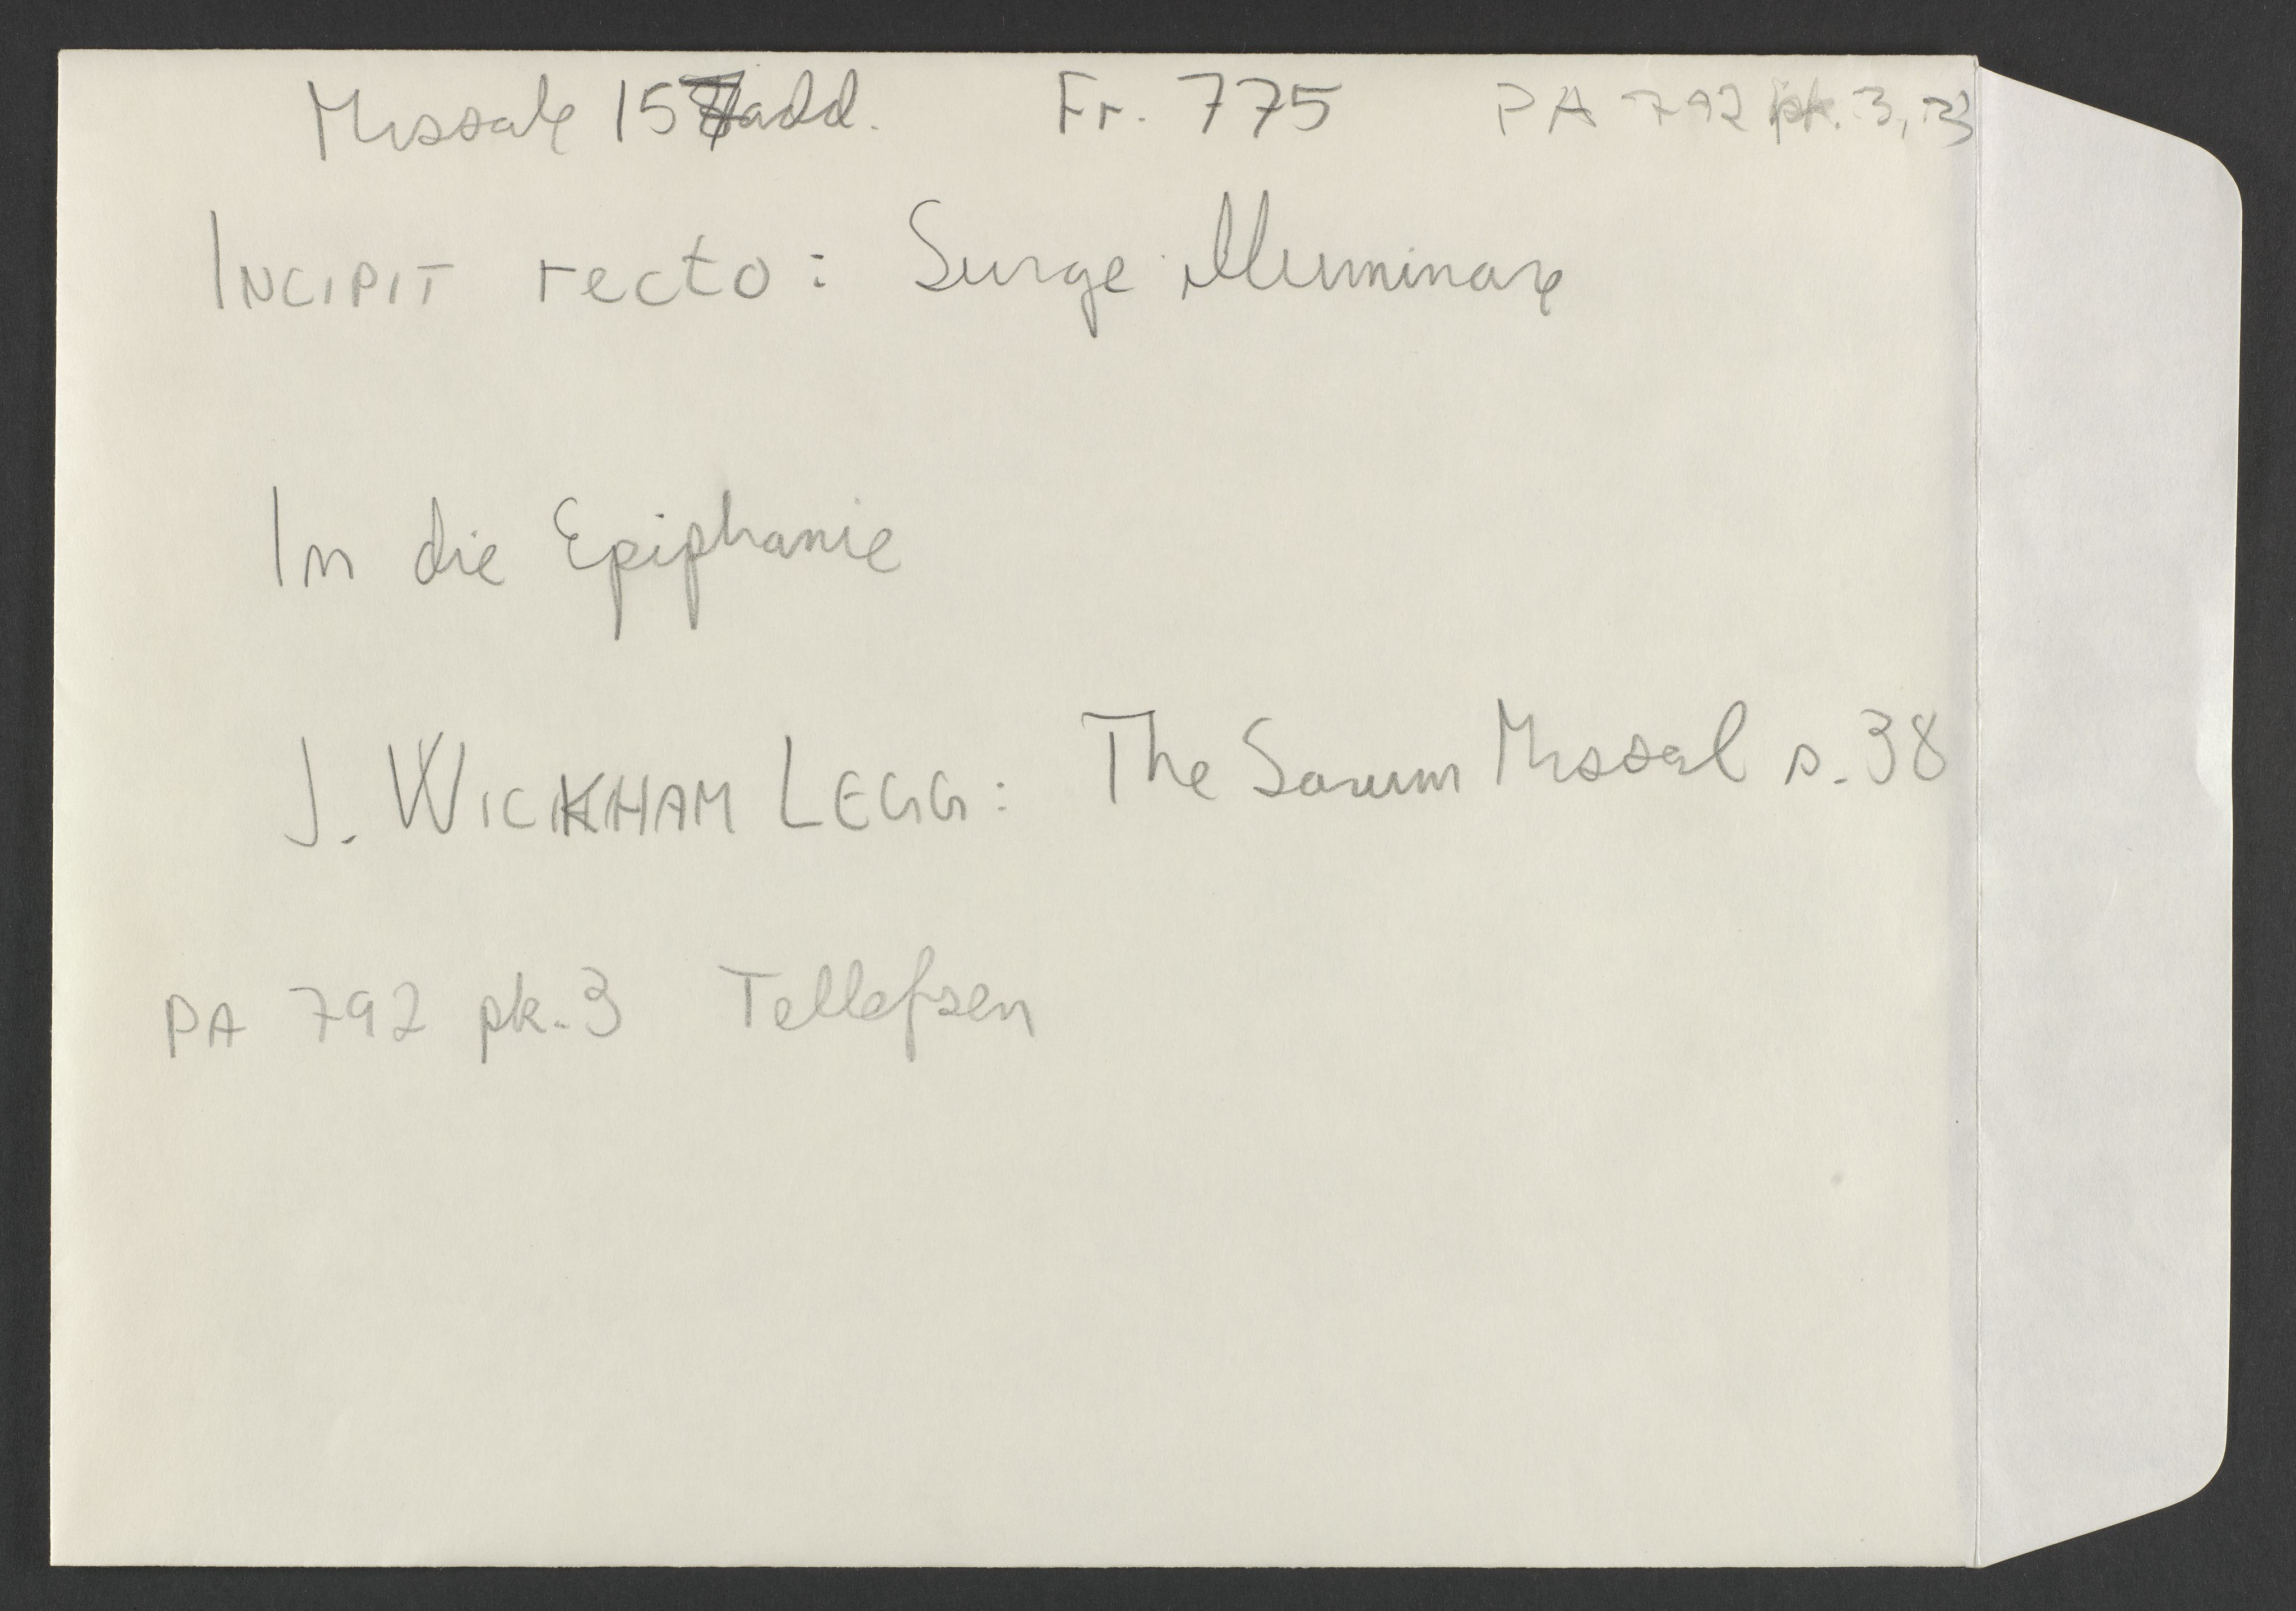 Missale 157 add. Fr. 775 PA 792 pk. 3, 3
INCIPIT recto: Surge illuminare
In die Epiphanie
J. WICKHAM LEGG: The Sarum Missal s. 38
PA 792 pk. 3 Tellefsen